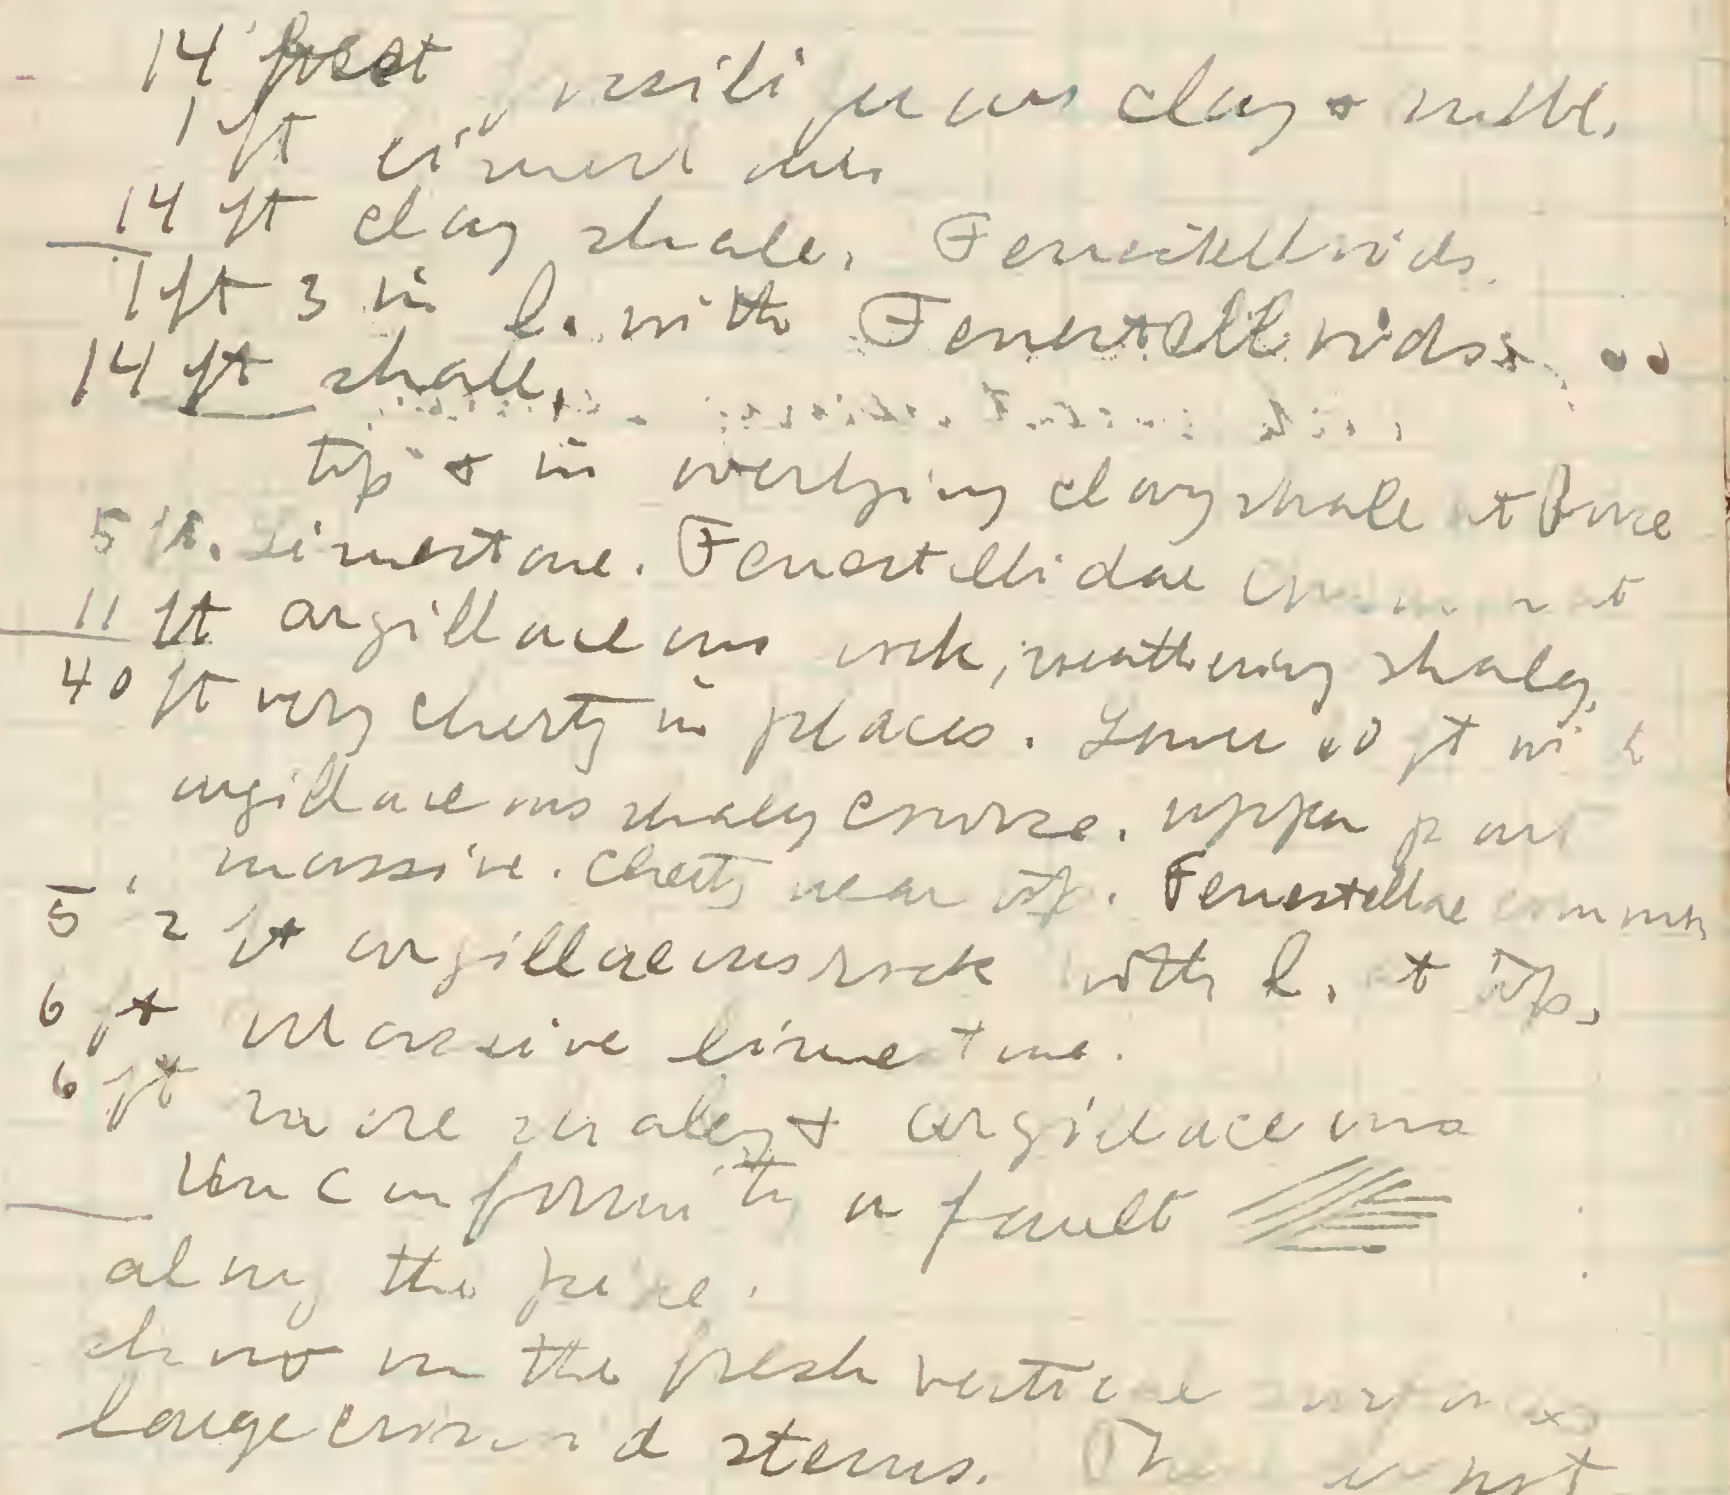 14 feet fossiliferous clay & rubbl.
1 ft limestone
14 ft clay shale. Fenestellids.
1 ft 3 in l. with Fenestellids.
14 ft shale.
top & in overlying clay shale at base
5 ft. limestone. Fenestellidae at
11 ft argillaceous rock, weathering shaly.
40 ft very cherty in places. Lower ft with
argillaceous shaly course. upper part
massive. Cherty near top. Fenestellae common
5 2 ft argillaceous rock with l. at top.
6 ft Massive limestone.
6 ft more shaley & argillaceous
Unconformity or fault
along the
show on the fresh vertical surfaces
large crinoid stems. not